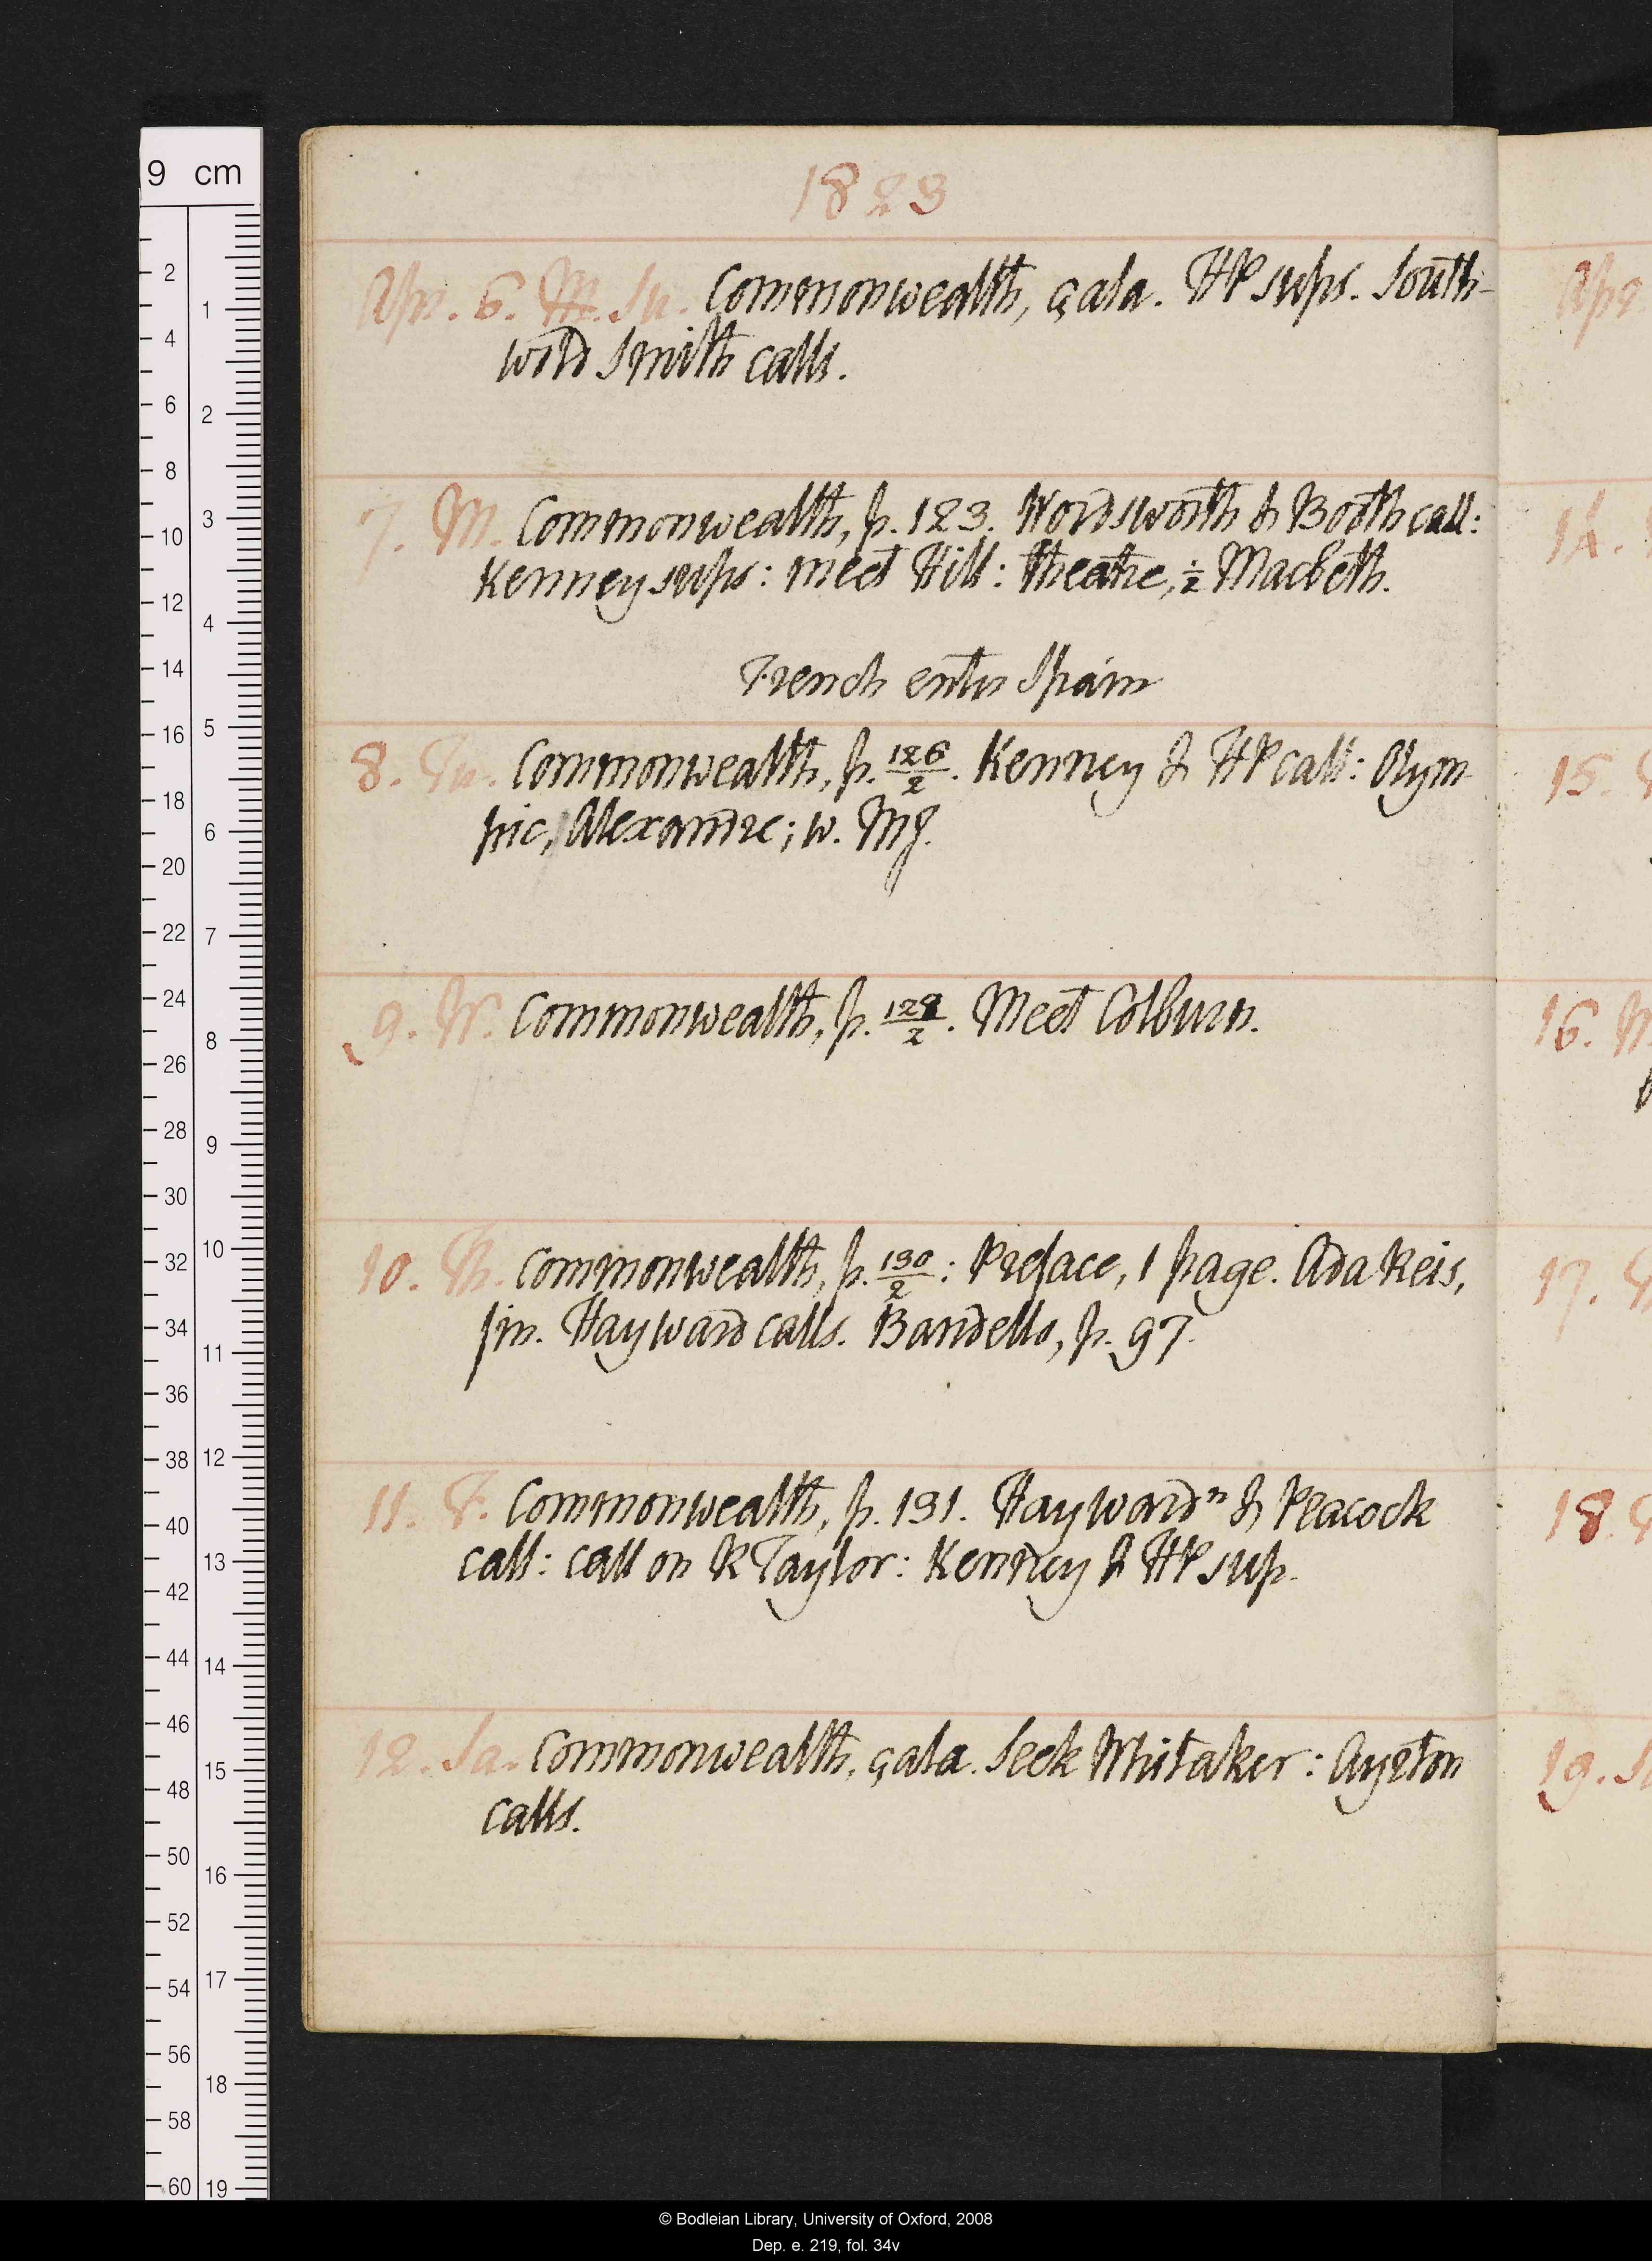 1823
Apr. 6. M. Su. Commonwealth, çala. HP sups. South-
wood Smith calls.
7. M. Commonwealth, p. 123. Wordsworth & Booth call:
Kenney sups: meet Hill: theatre, ½ Macbeth.
French enter Spain
8. Tu. Commonwealth, p. 126/2. Kenney & HP call: Olym
pic, Alexandre; w. MJ.
9. W. Commonwealth, p. 128/2. Meet Colburn.
10. Th. Commonwealth, p. 130/2: Preface, 1 page. Ada Reis,
fin. Hayward calls. Bandello, p. 97.
11. F. Commonwealth, p. 131. Haywardⁿ & Peacock
call: call on R Taylor: Kenney & HP sup.
12. Sa. Commonwealth, çala. Seek Whitaker: Ayrton
calls.
Apr
14.
15.
16.
17.
18.
19. S
9 cm
2 4 6 8 10 12 14 16 18 20 22 24 26 28 30 32 34 36 38 40 42 44 46 48 50 52 54 56 58 60
1 2 3 4 5 6 7 8 9 10 11 12 13 14 15 16 17 18 19
© Bodleian Library, University of Oxford, 2008
Dep. e. 219, fol. 34v